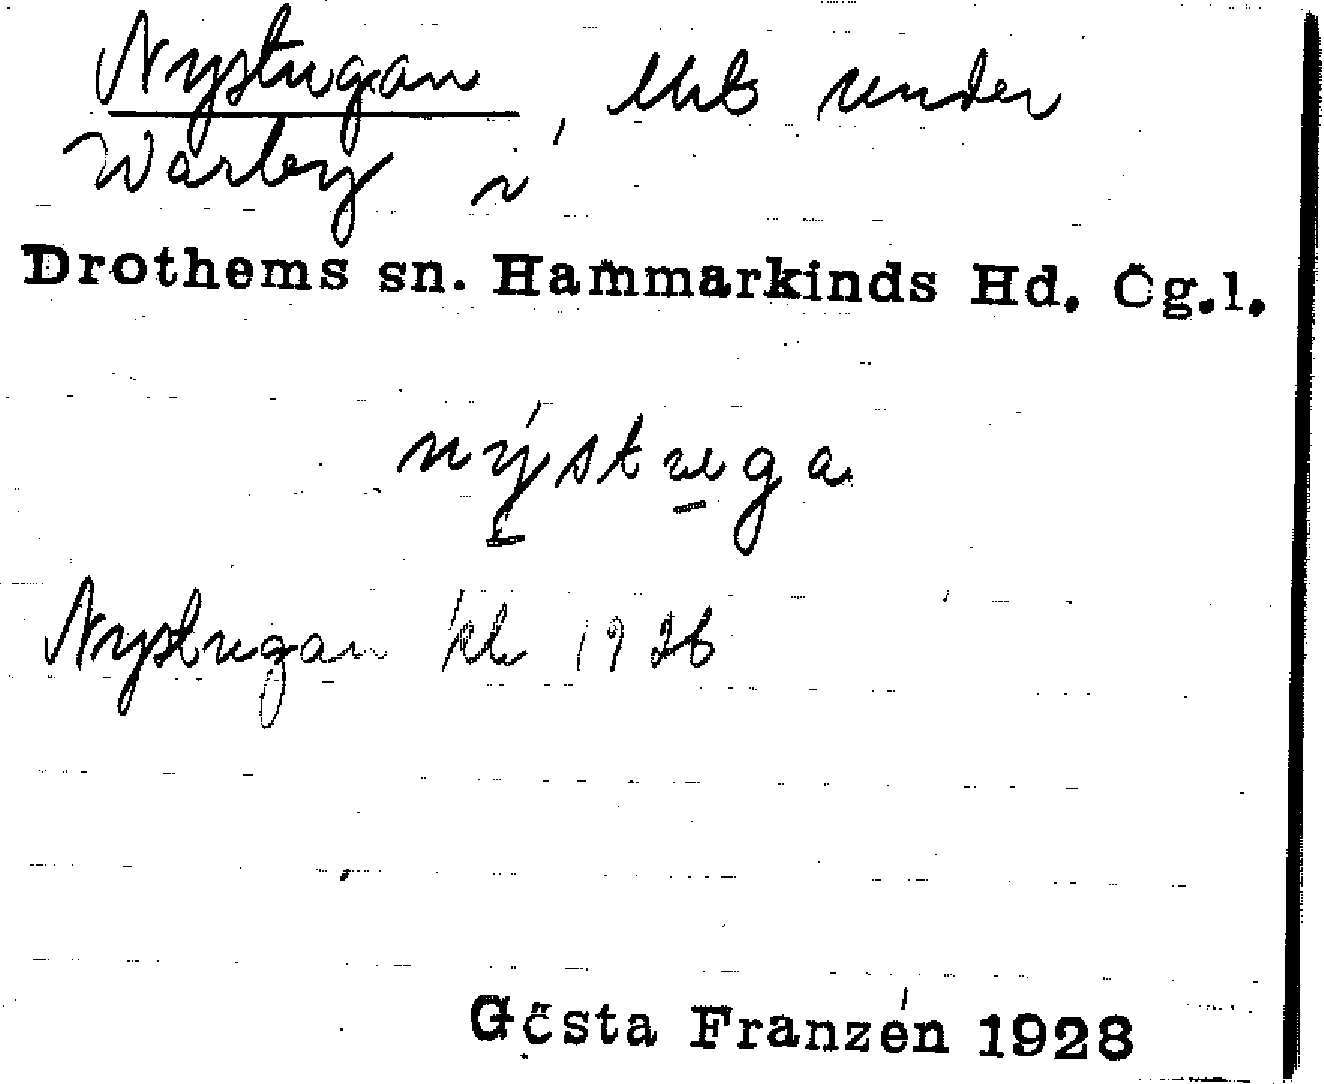 Nystugan, under
Warby
Drothems sn. Hammarkinds Hd. Ög.l.
nýstuga
Nystugan 1926
Gösta Franzén 1928